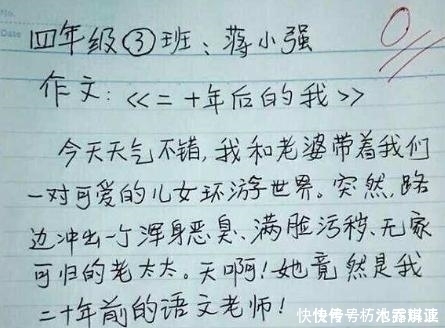 No.
Date
四年级③班:蒋小强
0
作文:<<二十年后的我>>
今天天气不错,我和老婆带着我们
一对可爱的儿女环游世界。突然,路
边冲出一个浑身恶臭、满脸污秽、无家
可归的老太太。天啊!她竟然是我
二十年前的语文老师!